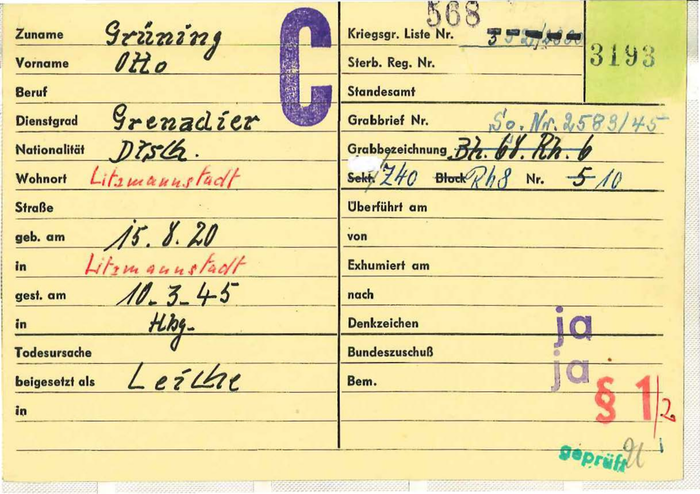 Zuname Grüning
Vorname Otto
Beruf
Dienstgrad Grenadier
Nationalität Dtsch.
Wohnort Litzmannstadt
Straße
geb. am 15.8.20
in Litzmannstadt
gest. am 10-3-45
in Hbg-
Todesursache
beigesetzt als Leiche
in
C
568
Kriegsgr. Liste Nr.
3193
Sterb. Reg. Nr.
Standesamt
Grabbrief Nr. So. Nr. 2583/45
Grabbezeichnung Bh. 68. Rh. 6
Sekt. Z40 Block Rh8 Nr. 5 10
Überführt am
von
Exhumiert am
nach
Denkzeichen ja
Bundeszuschuß ja
Bem.
§ 1/2
geprüft